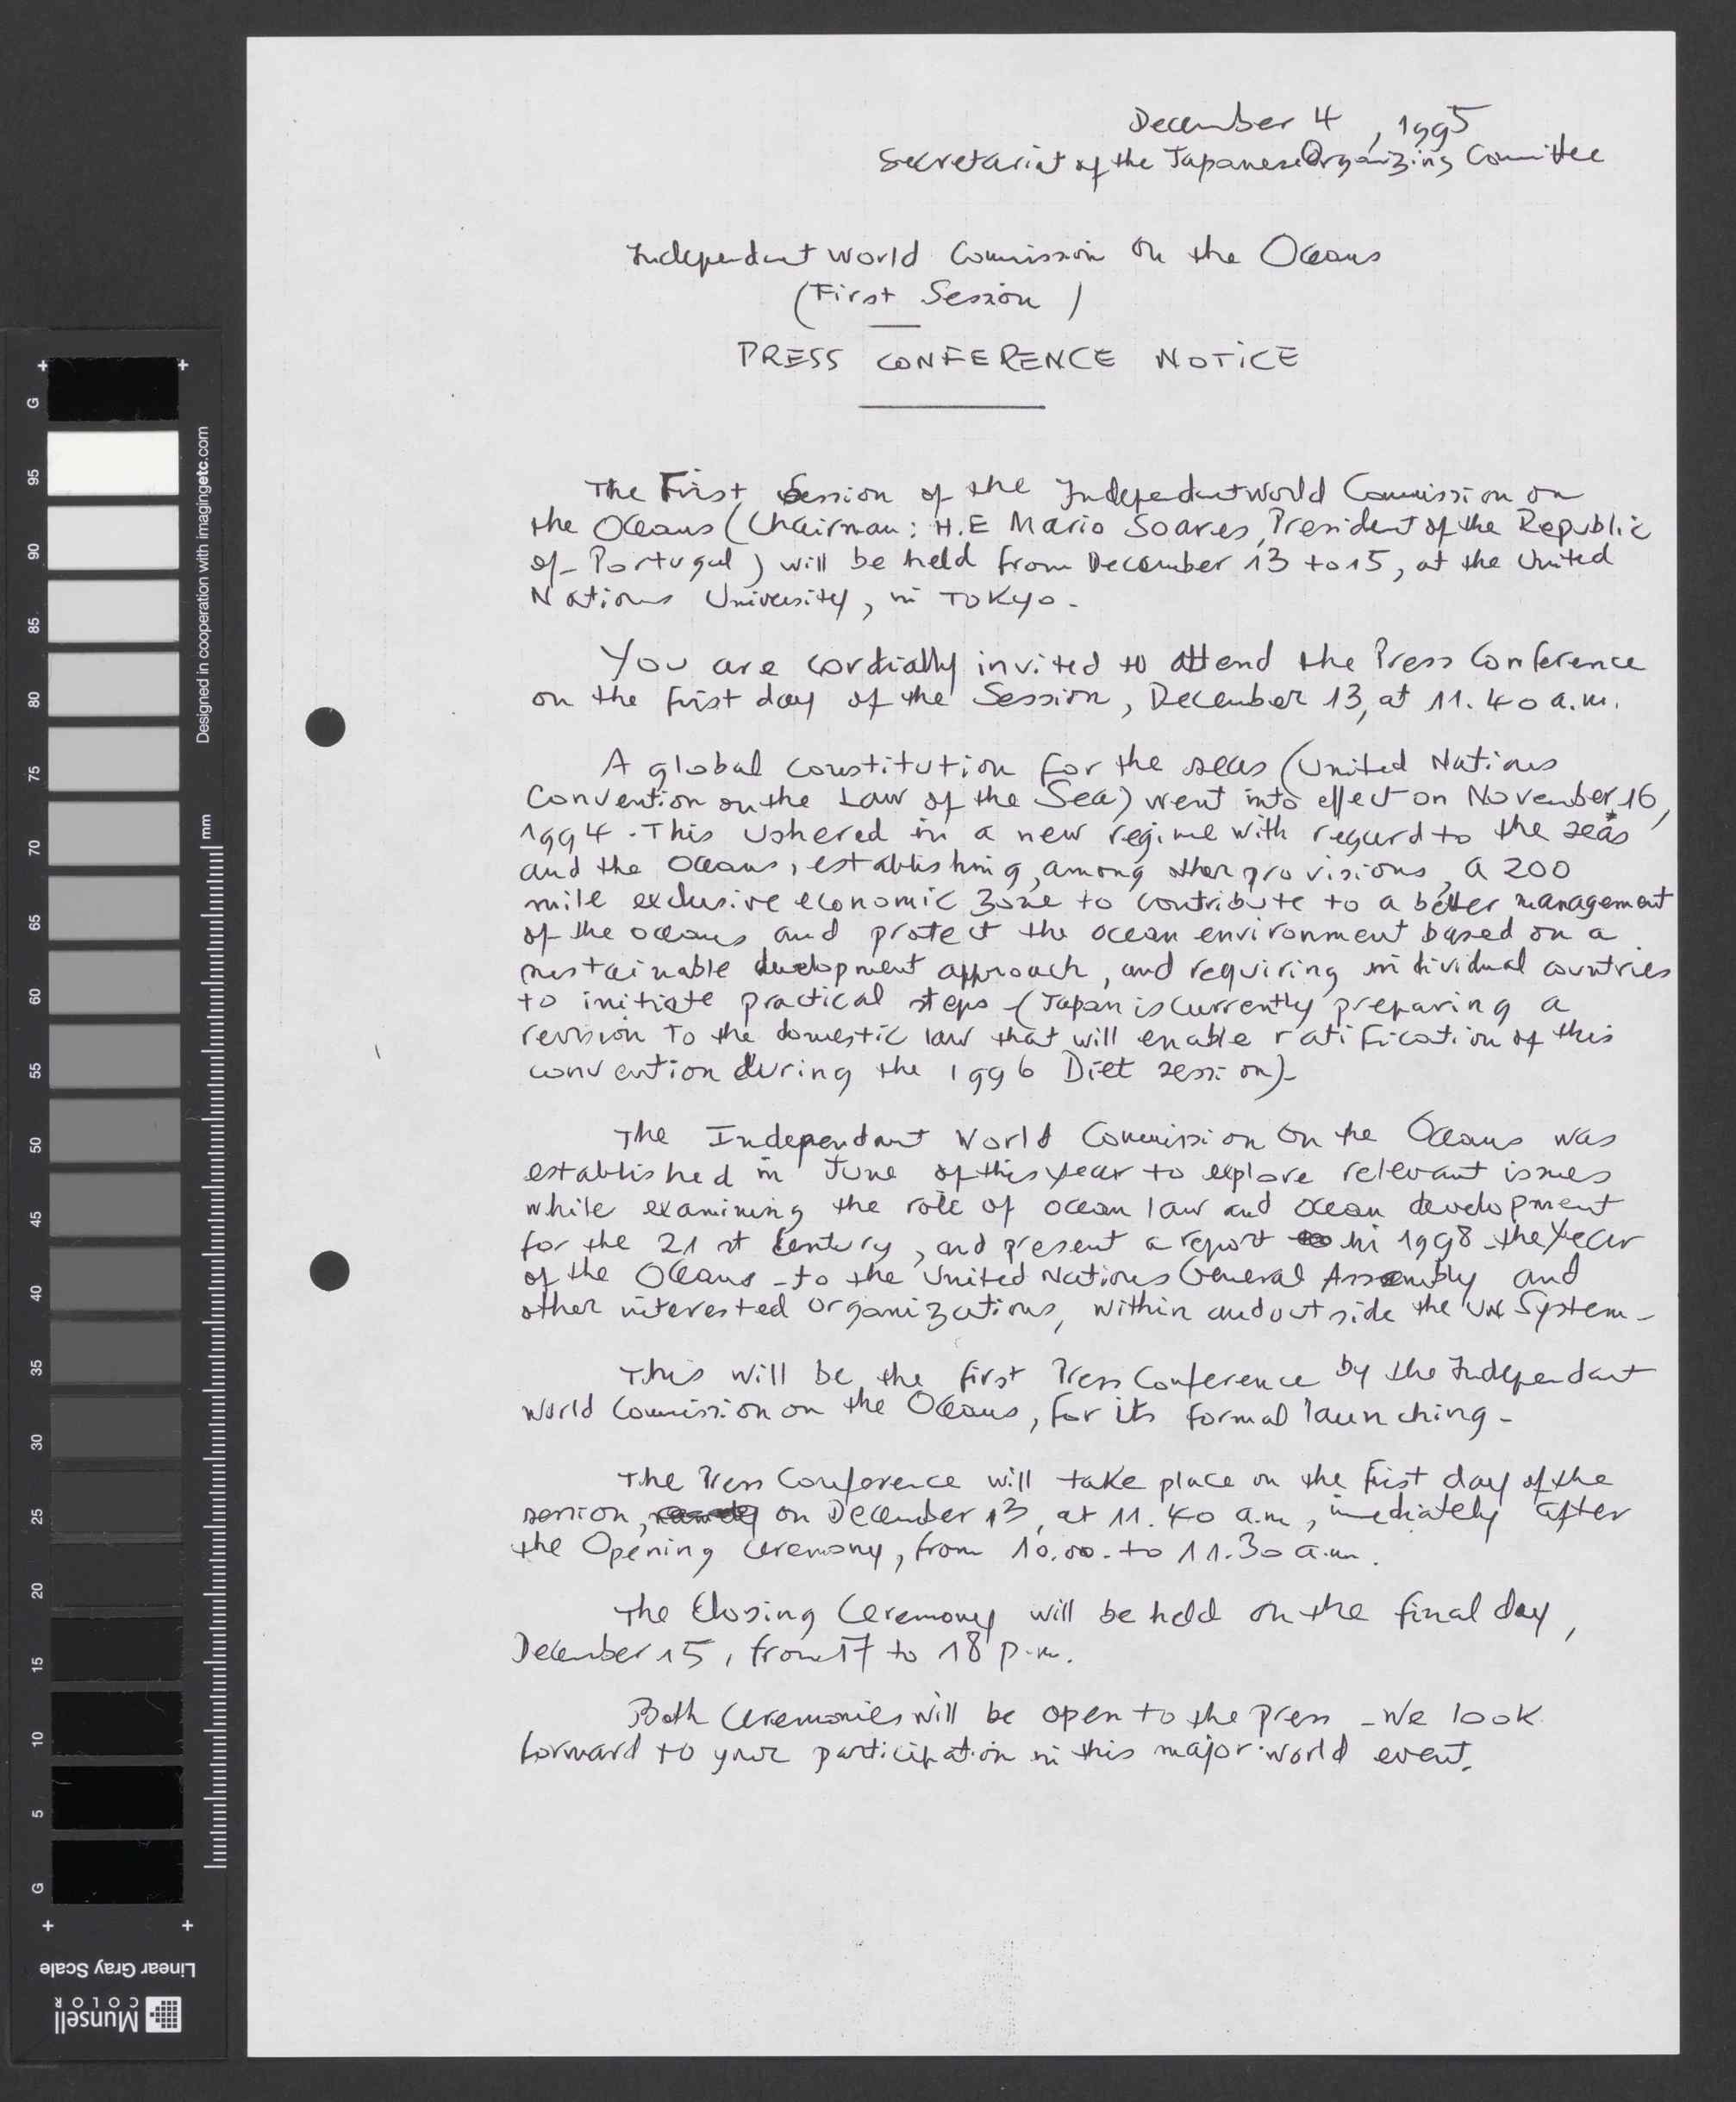 December 4, 1995
Secretariat of the Japanese Organizing Committee
Independent World Commission on the Oceans
(First Session)
PRESS CONFERENCE NOTICE
The First Session of the Independent World Commission on
the Oceans (Chairman: H.E Mario Soares, President of the Republic
of Portugal) will be held from December 13 to 15, at the United
Nations University, in Tokyo.
You are cordially invited to attend the Press Conference
on the first day of the Session, December 13, at 11.40 a.m.
A global constitution for the seas (United Nations
Convention on the Law of the Sea) went into effect on November 16,
1994. This ushered in a new regime with regard to the seas
and the Oceans, establishing, among other provisions, a 200
mile exclusive economic zone to contribute to a better management
of the oceans and protect the ocean environment based on a
sustainable development approach, and requiring individual countries
to initiate practical steps (Japan is currently preparing a
revision to the domestic law that will enable ratification of this
convention during the 1996 Diet session).
The Independent World Commission on the Oceans was
established in June of this year to explore relevant issues
while examining the role of ocean law and ocean development
for the 21st Century, and present a report in 1998 - the Year
of the Oceans - to the United Nations General Assembly and
other interested Organizations, within and outside the UN System.
This will be the first Press Conference by the Independent
World Commission on the Oceans, for its formal launching.
The Press Conference will take place on the first day of the
session, on December 13, at 11.40 a.m, imediately after
the Opening Ceremony, from 10.00. to 11.30 a.m.
The Closing Ceremony will be held on the final day,
December 15, from 17 to 18 p.m.
Both Ceremonies will be open to the press - We look
forward to your participation in this major world event.
G
95
90
85
80
75
70
65
60
55
50
45
40
35
30
25
20
15
10
5
G
Designed in cooperation with imagingetc.com
mm
Linear Gray Scale
Munsell
COLOR